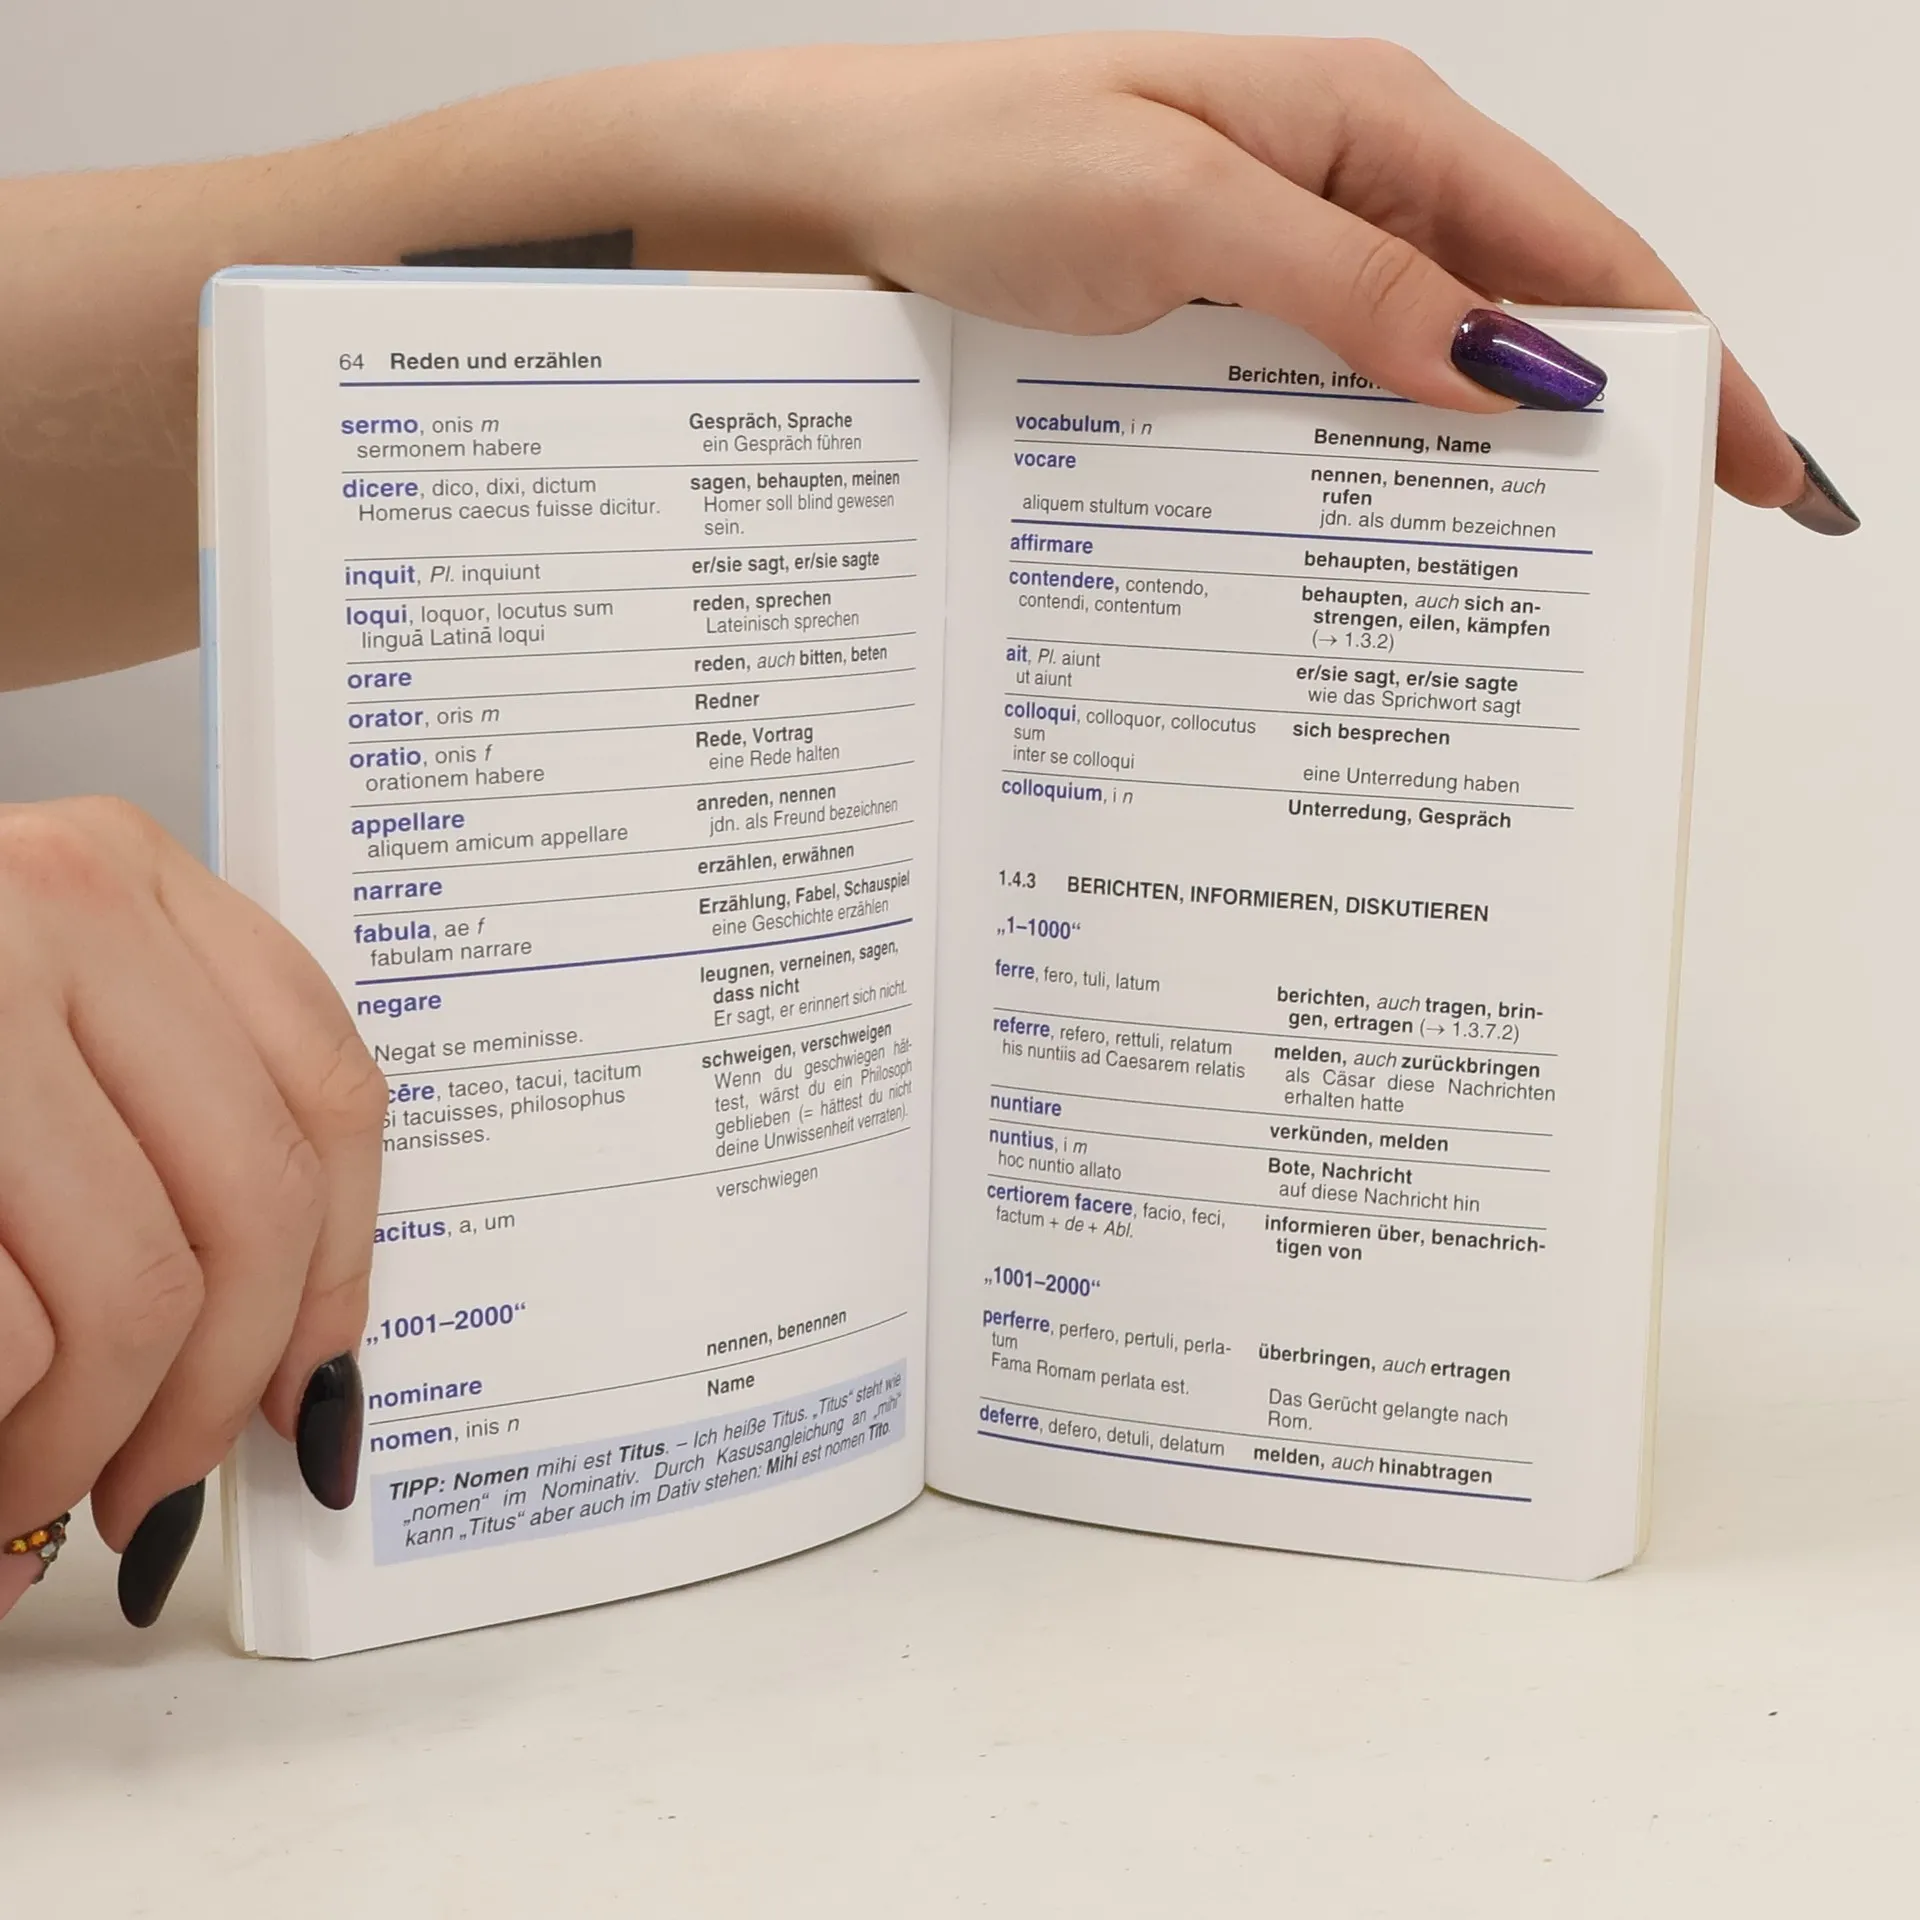 64 Reden und erzählen
sermo, onis m Gespräch, Sprache
sermonem habere ein Gespräch führen
dicere, dico, dixi, dictum sagen, behaupten, meinen
Homerus caecus fuisse dicitur. Homer soll blind gewesen
sein.
inquit, Pl. inquiunt er/sie sagt, er/sie sagte
loqui, loquor, locutus sum reden, sprechen
linguā Latinā loqui Lateinisch sprechen
orare reden, auch bitten, beten
orator, oris m Redner
oratio, onis f Rede, Vortrag
orationem habere eine Rede halten
appellare anreden, nennen
aliquem amicum appellare jdn. als Freund bezeichnen
narrare erzählen, erwähnen
fabula, ae f Erzählung, Fabel, Schauspiel
fabulam narrare eine Geschichte erzählen
negare leugnen, verneinen, sagen,
dass nicht
Negat se meminisse. Er sagt, er erinnert sich nicht.
cēre, taceo, tacui, tacitum schweigen, verschweigen
Si tacuisses, philosophus Wenn du geschwiegen hät-
mansisses. test, wärst du ein Philosoph
geblieben (= hättest du nicht
deine Unwissenheit verraten).
acitus, a, um verschwiegen
„1001–2000“
nominare nennen, benennen
nomen, inis n Name
TIPP: Nomen mihi est Titus. – Ich heiße Titus. „Titus“ steht wie
„nomen“ im Nominativ. Durch Kasusangleichung an „mihi“
kann „Titus“ aber auch im Dativ stehen: Mihi est nomen Tito.
Berichten,
vocabulum, i n Benennung, Name
vocare nennen, benennen, auch
rufen
aliquem stultum vocare jdn. als dumm bezeichnen
affirmare behaupten, bestätigen
contendere, contendo, behaupten, auch sich an-
contendi, contentum strengen, eilen, kämpfen
(→ 1.3.2)
ait, Pl. aiunt er/sie sagt, er/sie sagte
ut aiunt wie das Sprichwort sagt
colloqui, colloquor, collocutus sich besprechen
sum
inter se colloqui eine Unterredung haben
colloquium, i n Unterredung, Gespräch
1.4.3 BERICHTEN, INFORMIEREN, DISKUTIEREN
„1–1000“
ferre, fero, tuli, latum berichten, auch tragen, brin-
gen, ertragen (→ 1.3.7.2)
referre, refero, rettuli, relatum melden, auch zurückbringen
his nuntiis ad Caesarem relatis als Cäsar diese Nachrichten
erhalten hatte
nuntiare verkünden, melden
nuntius, i m Bote, Nachricht
hoc nuntio allato auf diese Nachricht hin
certiorem facere, facio, feci, informieren über, benachrich-
factum + de + Abl. tigen von
„1001–2000“
perferre, perfero, pertuli, perla- überbringen, auch ertragen
tum
Fama Romam perlata est. Das Gerücht gelangte nach
Rom.
deferre, defero, detuli, delatum melden, auch hinabtragen